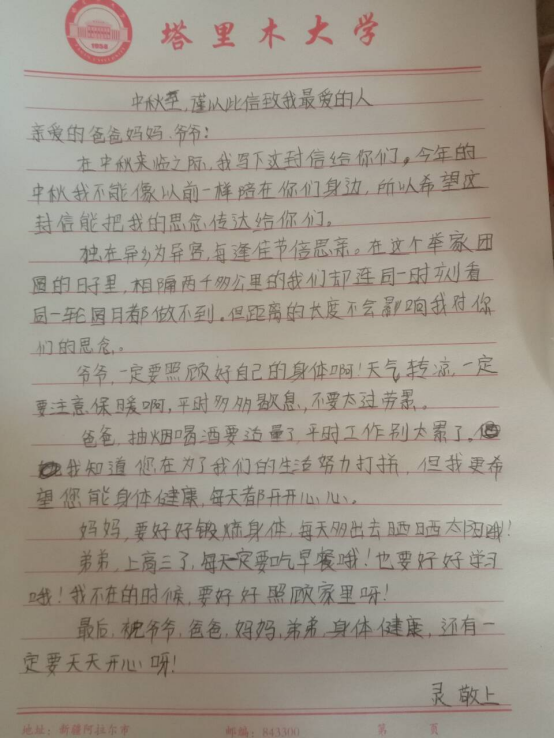 1958
塔里木大学
中秋至,谨以此信致我最爱的人
亲爱的爸爸妈妈、爷爷:
在中秋来临之际,我写下这封信给你们。今年的
中秋我不能像以前一样陪在你们身边,所以希望这
封信能把我的思念传达给你们。
独在异乡为异客,每逢佳节倍思亲。在这个举家团
圆的日子里,相隔两千多公里的我们却连同一时刻看
同一轮圆月都做不到。但距离的长度不会影响我对你
们的思念。
爷爷,一定要照顾好自己的身体啊!天气转凉,一定
要注意保暖啊,平时多多歇息,不要太过劳累。
爸爸,抽烟喝酒要适量了,平时工作别太累了。
我知道您在为了我们的生活努力打拼,但我更希
望您能身体健康,每天都开开心心。
妈妈,要好好锻炼身体,每天多出去晒晒太阳哦!
弟弟,上高三了,每天一定要吃早餐哦!也要好好学习
哦!我不在的时候,要好好照顾家里呀!
最后,祝爷爷,爸爸,妈妈,弟弟,身体健康,还有一
定要天天开心呀!
灵 敬上
地址:新疆阿拉尔市 邮编:843300 第 页